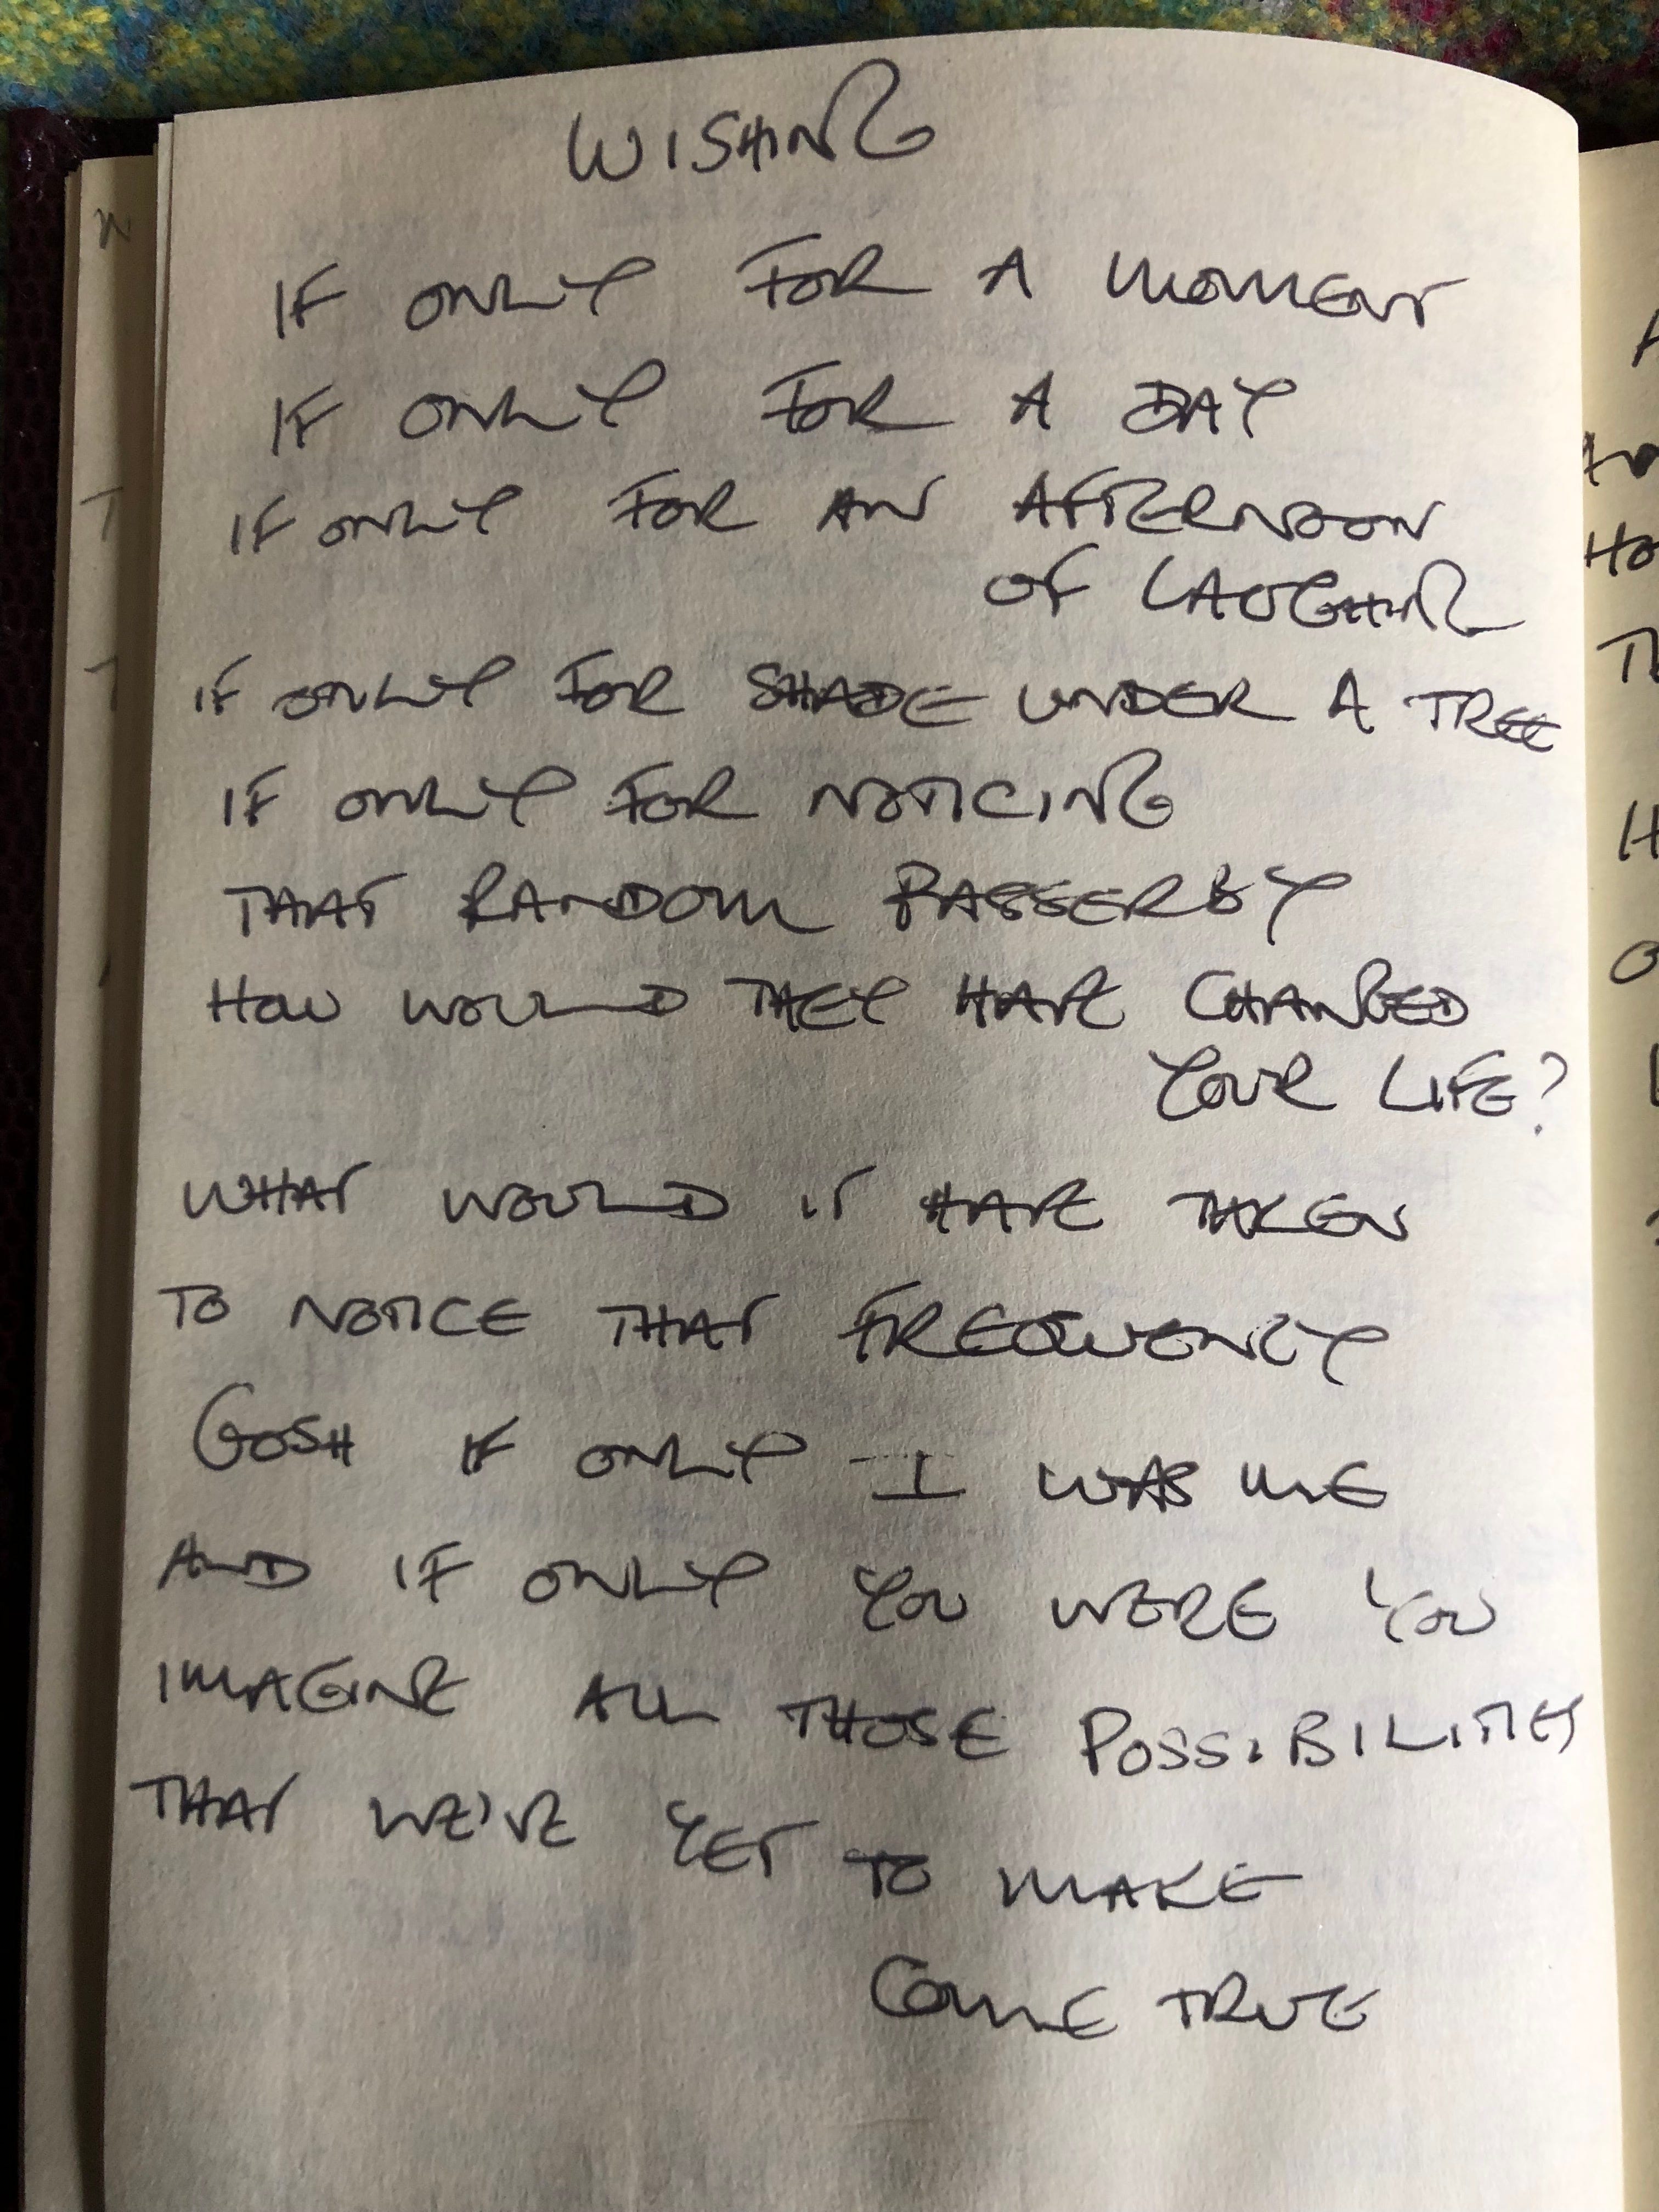 WISHING
IF ONLY FOR A MOMENT
IF ONLY FOR A DAY
IF ONLY FOR AN AFTERNOON
OF LAUGHING
IF ONLY FOR SHADE UNDER A TREE
IF ONLY FOR NOTICING
THAT RANDOM PASSERBY
HOW WOULD THEY HAVE CHANGED
YOUR LIFE?
WHAT WOULD IT HAVE TAKEN
TO NOTICE THAT FREQUENCY
GOSH IF ONLY I WAS ME
AND IF ONLY YOU WERE YOU
IMAGINE ALL THOSE POSSIBILITIES
THAT WE'VE YET TO MAKE
COME TRUE